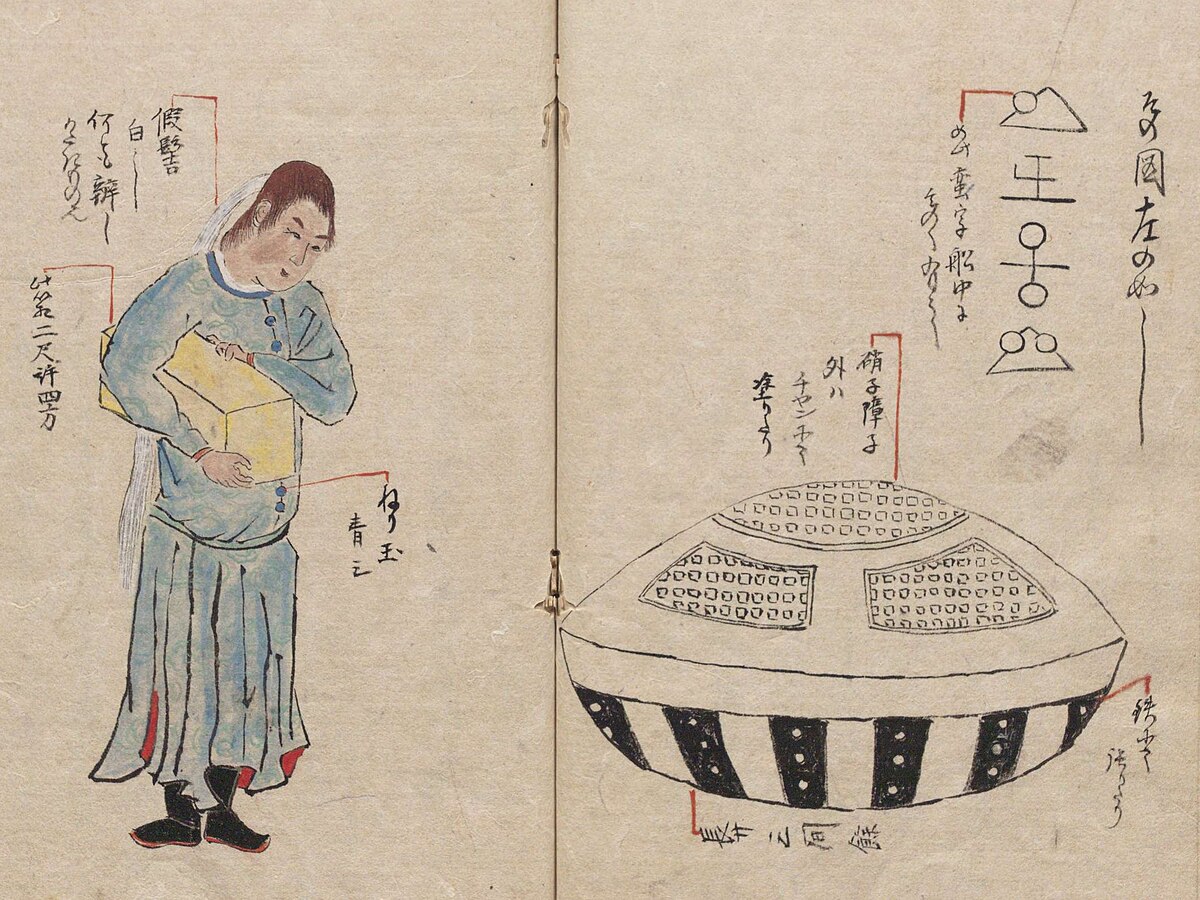 その図左の如し
如此蛮字船中に
多く有之
硝子障子
外ハ
チヤンにて
塗りたり
鉄にて
張りたり
假髻
白し
何とも辨し
此箱二尺許四方
ねり玉
青し